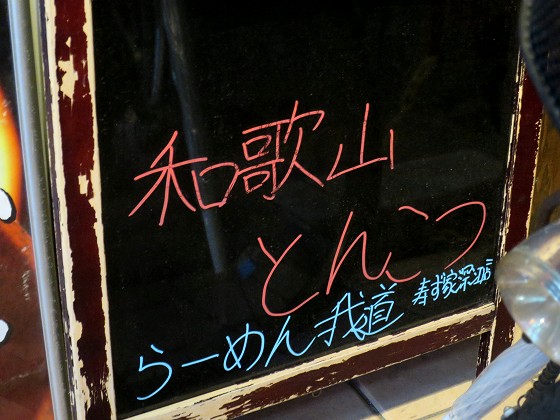 和歌山
とんこつ
らーめん我道 寿ず家深江店